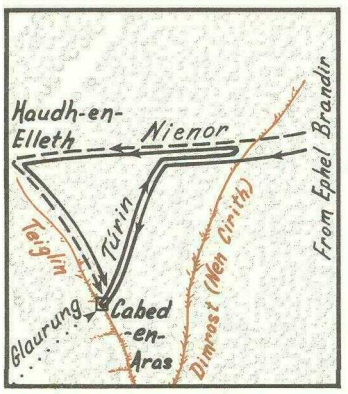 Haudh-en-
Elleth
Nienor
From Ephel Brandir
Túrin
Teiglin
Dimrost (Nen Girith)
Glaurung
Cabed
-en-
Aras